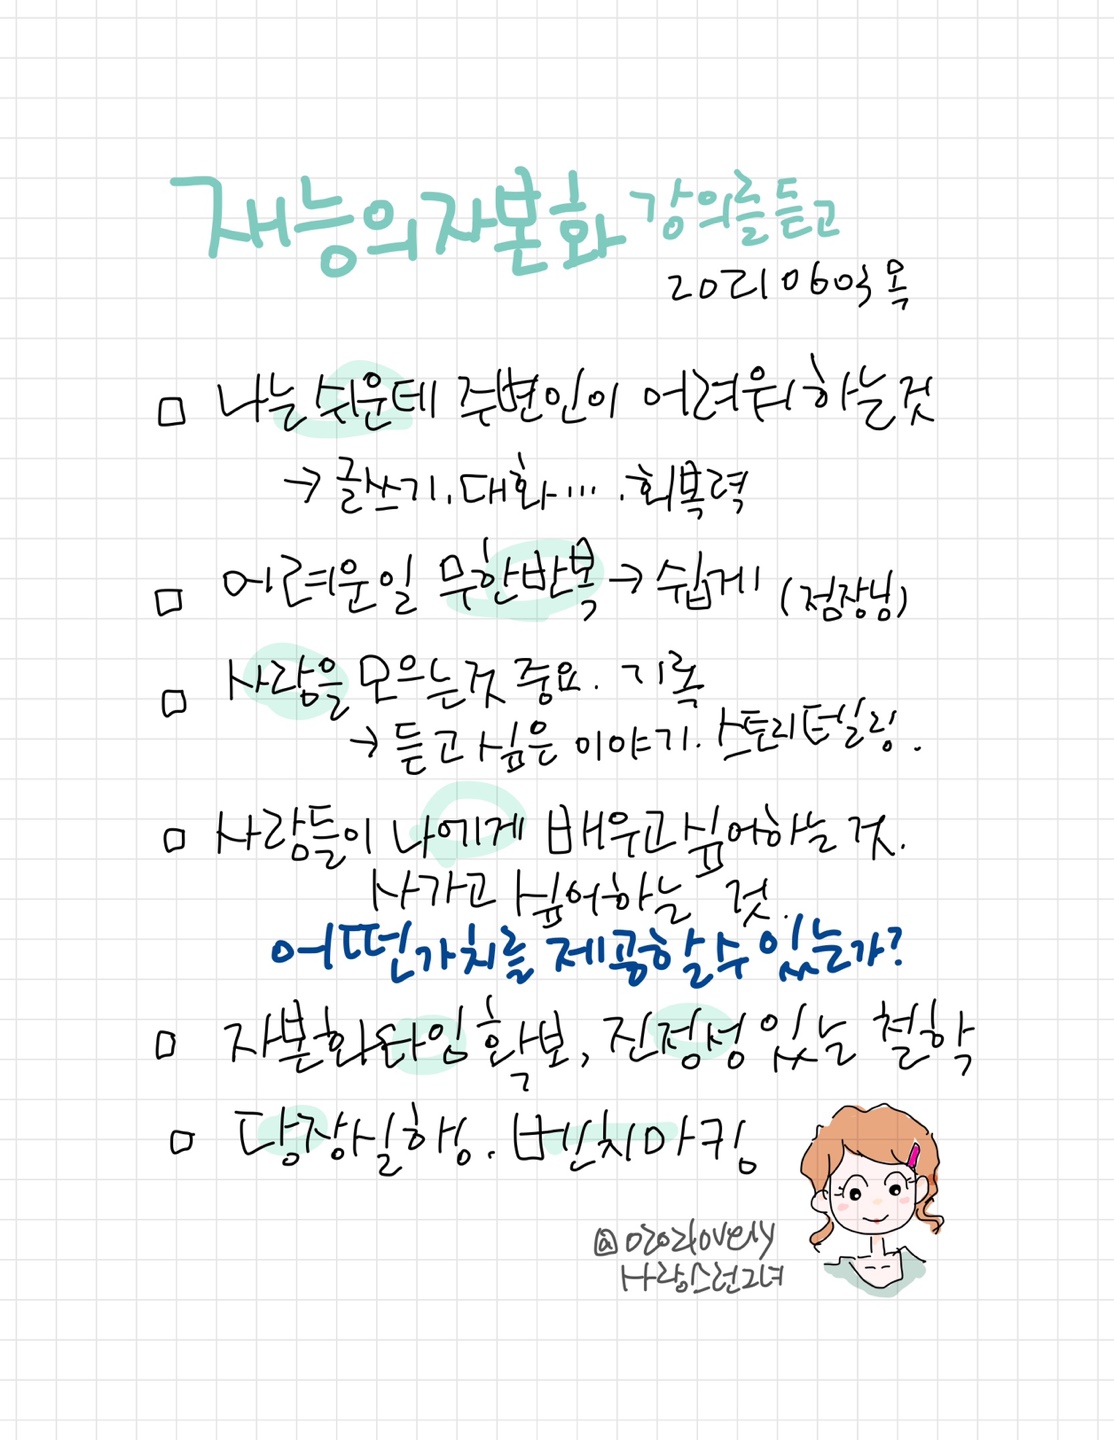 재능의 자본화 강의를 듣고
20210603 목
□ 나는 쉬운데 주변인이 어려워하는것
→ 글쓰기. 대화... . 회복력
□ 어려운일 무한반복 → 쉽게 (점장님)
□ 사람을 모으는것 중요. 기록
→ 듣고 싶은 이야기. 스토리텔링.
□ 사람들이 나에게 배우고싶어하는 것.
사가고 싶어하는 것.
어떤가치를 제공할수 있는가?
□ 자본화타임 확보, 진정성 있는 철학
□ 당장실행. 벤치마킹
사랑스런그녀